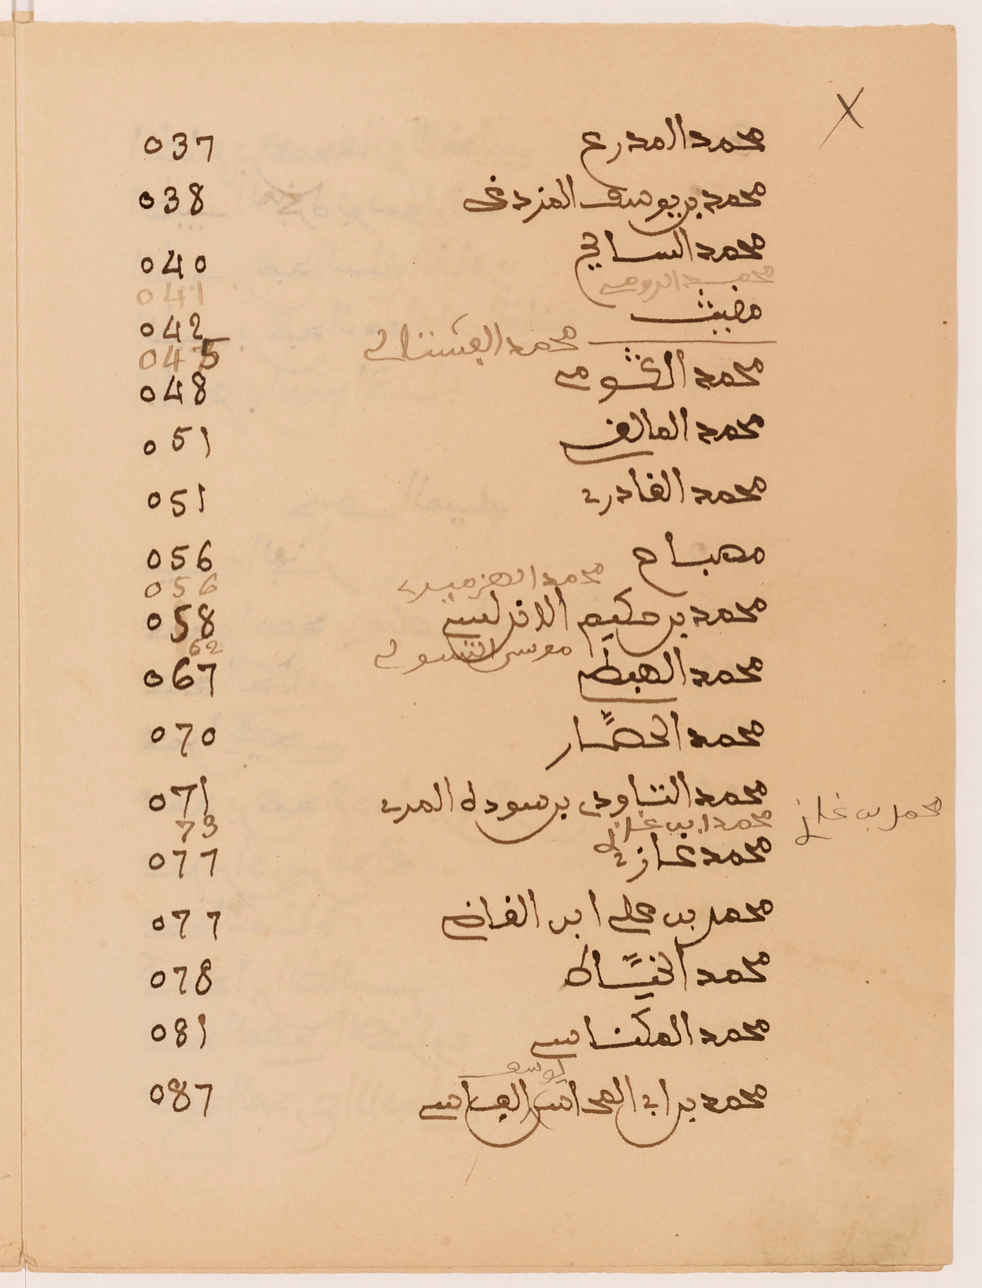 محمد المدرع 037
محمد بن يوسف المزدغى 038
محمد الساىح 040
محمد الرومى 041
مغيث 042
محمد القشتالي 045
محمد الكومى 048
محمد المالقى 051
محمد القادرى 051
مصباح 056
محمد الهزميرى 056
محمد بن حكيم الاندلسى 058
موسى 62
محمد الهبطى 067
محمد الحصّار 070
محمد التاودى بن سودة المرى 071
محمد ابن غازي 73
محمد بن غازي
محمد غازى 077
محمد بن على ابن القاضى 077
محمد الخيّاط 078
محمد المكناسى 081
يوسف
محمد بن ابى المحاسن الفاسى 087